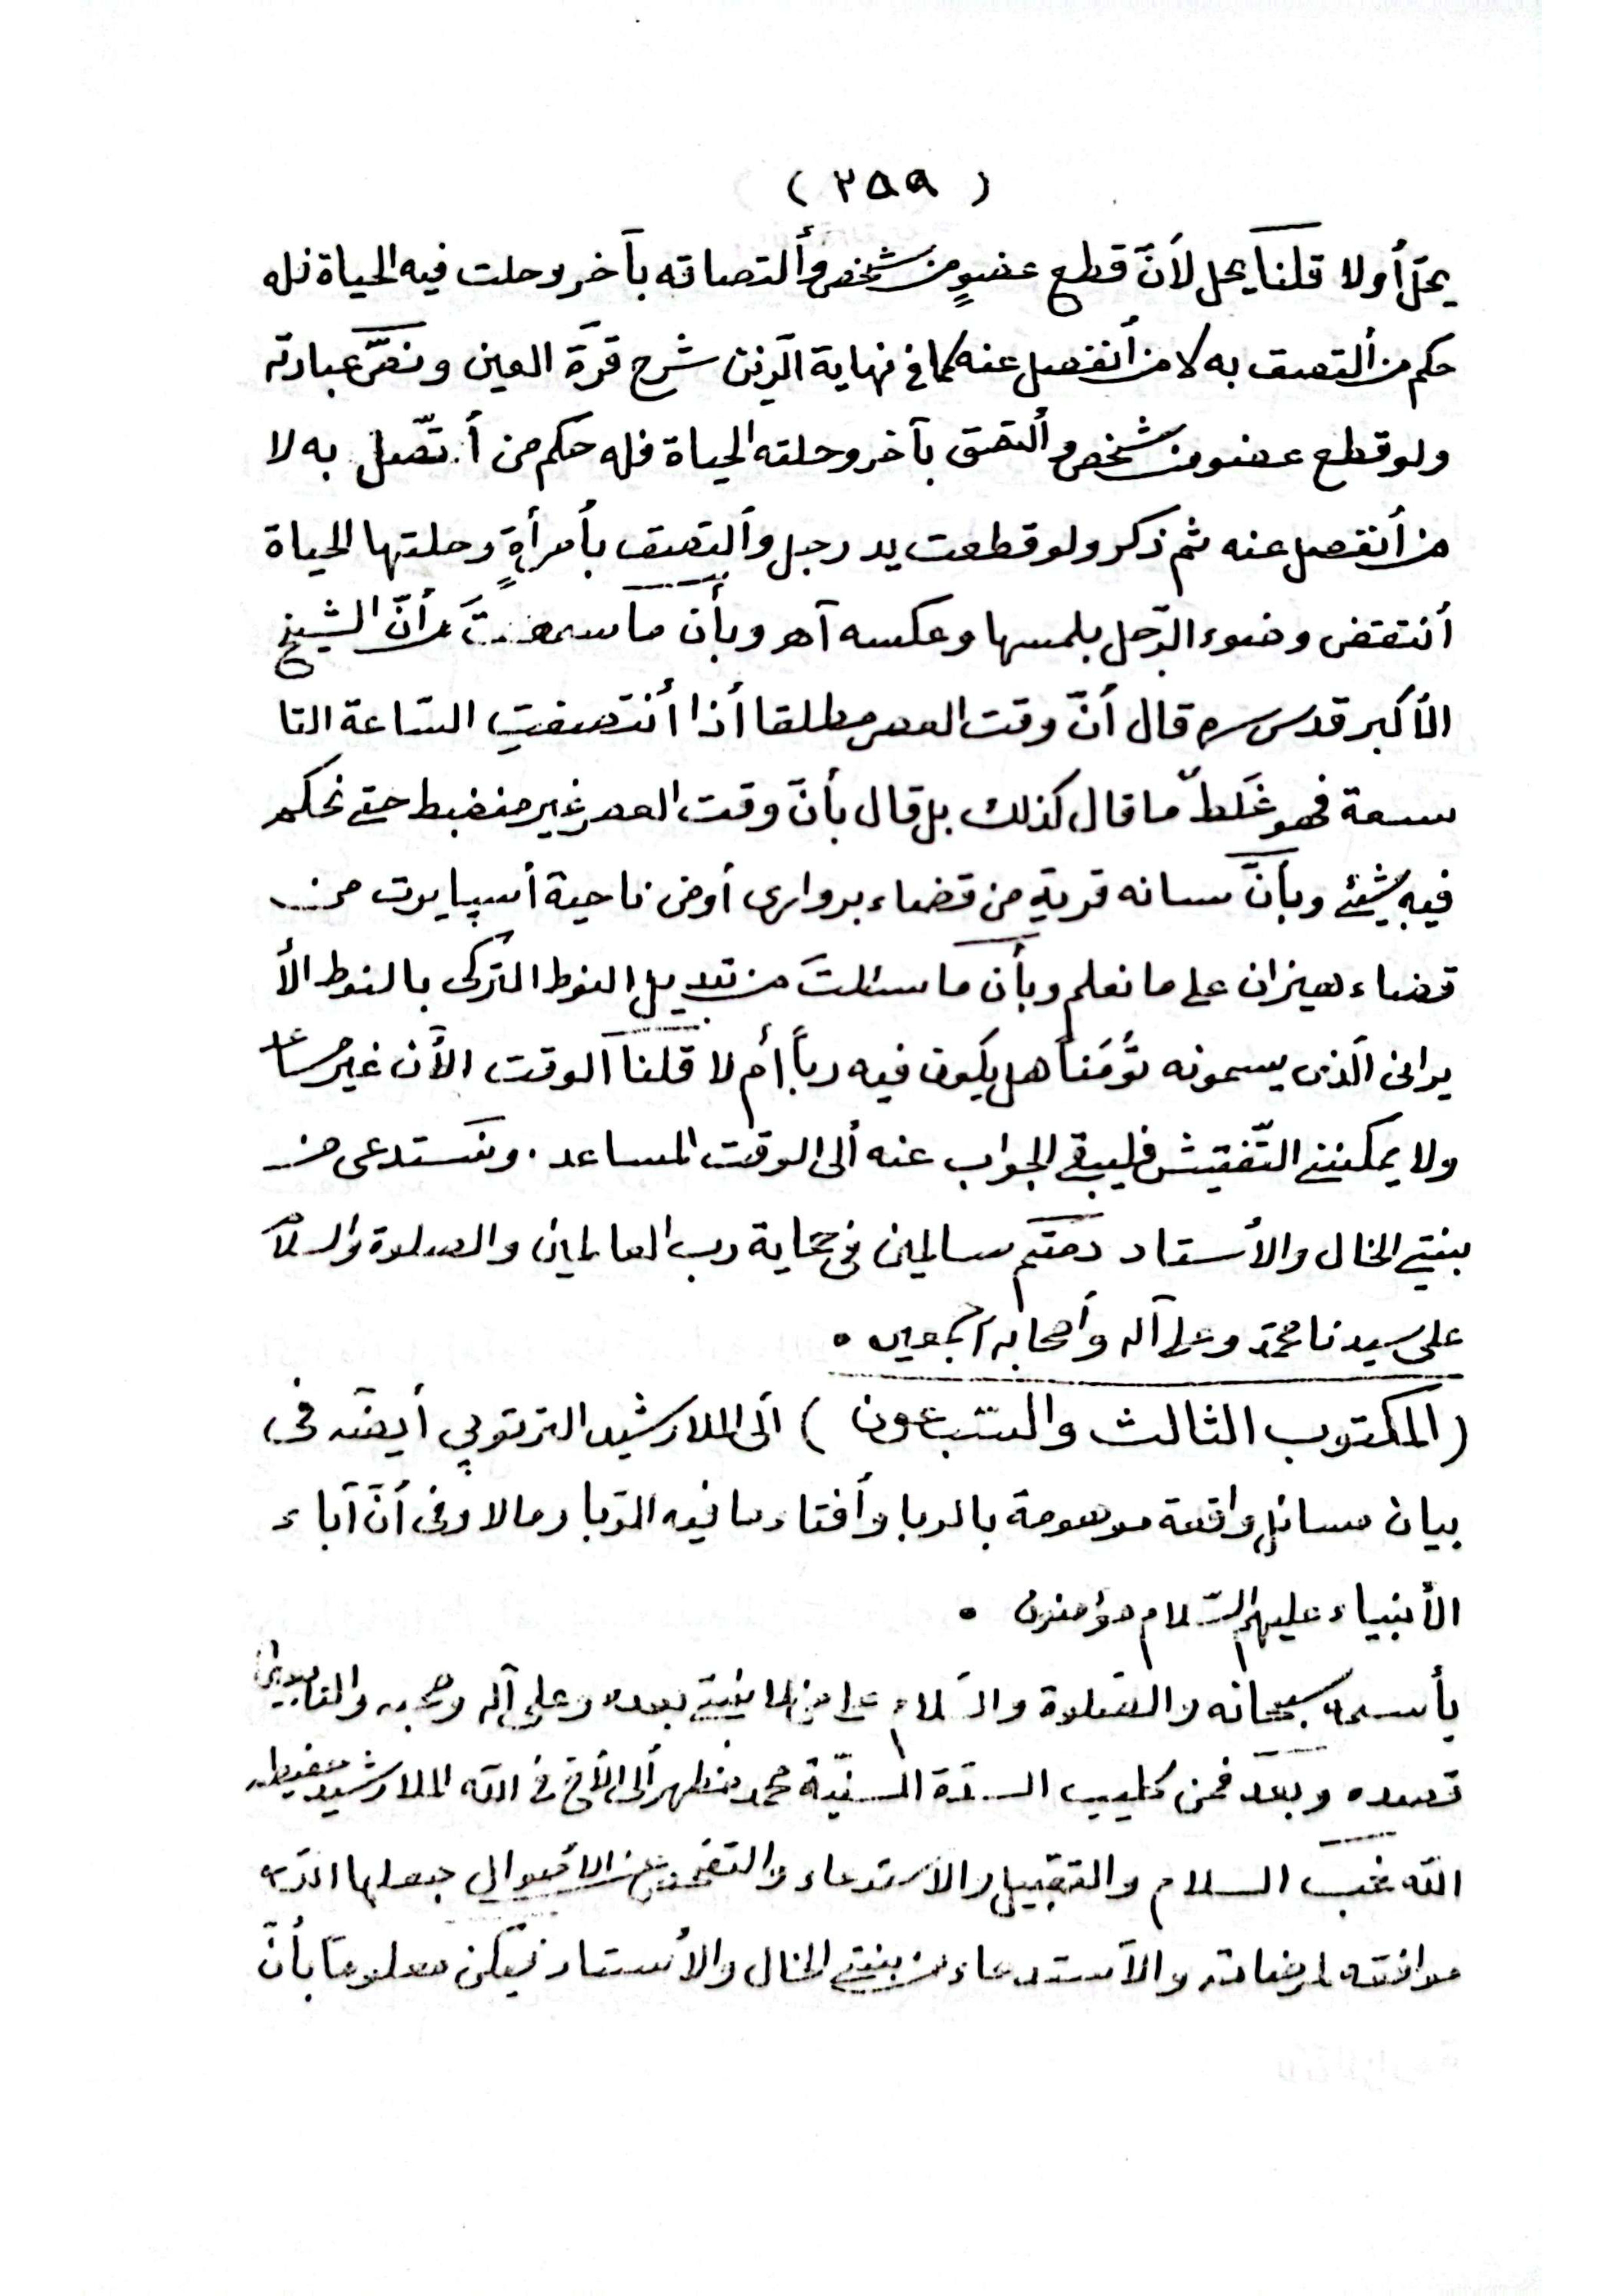 ( ٢٥٩ )
يحلّ أو لا قلنا يحل لأنّ قطع عضوٍ من شخص وألتصاقه بآخر وحلت فيه الحياة فله
حكم من ألتصق به لا من أنفصل عنه كما في نهاية الزين شرح قرّة العين ونصّ عبارته
ولو قطع عضو من شخص وألتصق بآخر وحلته الحياة فله حكم من أتّصل به لا
من أنفصل عنه ثم ذكر ولو قطعت يد رجل وألتصق بأمرأةٍ وحلتها الحياة
أنتقض وضوء الرّجل بلمسها وعكسه آهـ وبأن ما سمعتَ من أنّ الشيخ
الأكبر قدس سره قال أنّ وقت العصر مطلقا أذا أنتصفت السّاعة التا
سعة فهو غَلطٌ ما قال كذلك بل قال بأنّ وقت العصر غير منضبط حتى نحكم
فيه بشيئ وبأنّ سانه قرية من قضاء برواري أو من ناحية أسپايرت من
قضاء هيزان على ما نعلم وبأن ما سئلتَ من تبديل النوط التركى بالنوط الأ
يرانى الّذى يسمونه تُومَناً هل يكون فيه رباً أم لا قلنا الوقت الأن غير مساعد
ولا يمكننى التّفتيش فليبقى الجواب عنه ألى الوقت المساعد . ونستدعى من
بنتي الخال والأستاد دمتم سالمين في حماية رب العالمين والصلوة والسلام
على سيدنا محمّد وعلى آله وأصحابه أجمعين .
( المكتوب الثالث والسّبعون ) ألى الملا رشيد الترتوپي أيضا في
بيان مسائل واقعة موهومة بالربا وأفتاء ما فيه الرّبا وما لا وفى أنّ آباء
الأنبياء عليهم السّلام مؤمنون .
بأسمه سبحانه والصّلوة والسّلام على من لا نبيّ بعده وعلى آله وصحبه والتابعين
قصده وبعد فمن كليب السّدّة السنيّة محمد مظهر ألى الأخ في الله الملا رشيد حفيظه
الله غبّ السلام والتقبيل والأستدعاء والتفحص عن الأحوال جعلها الله
موافقه لمرضاته والأستدعاء من بنتي الخال والأستاد فيكن معلوما بأنّ